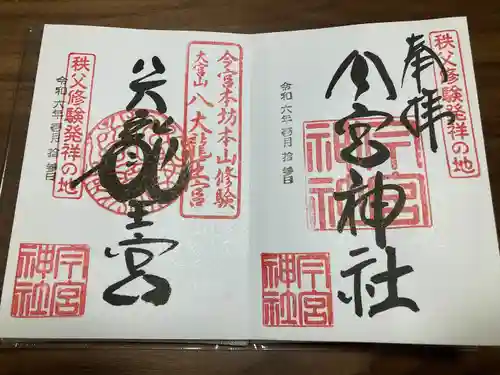 奉拝
秩父修験発祥の地
今宮神社
今宮神社
今宮神社
令和六年壱月拾参日
今宮本坊本山修験
大宮山 八大龍王宮
八大龍王宮
秩父修験発祥の地
令和六年壱月拾参日
今宮神社